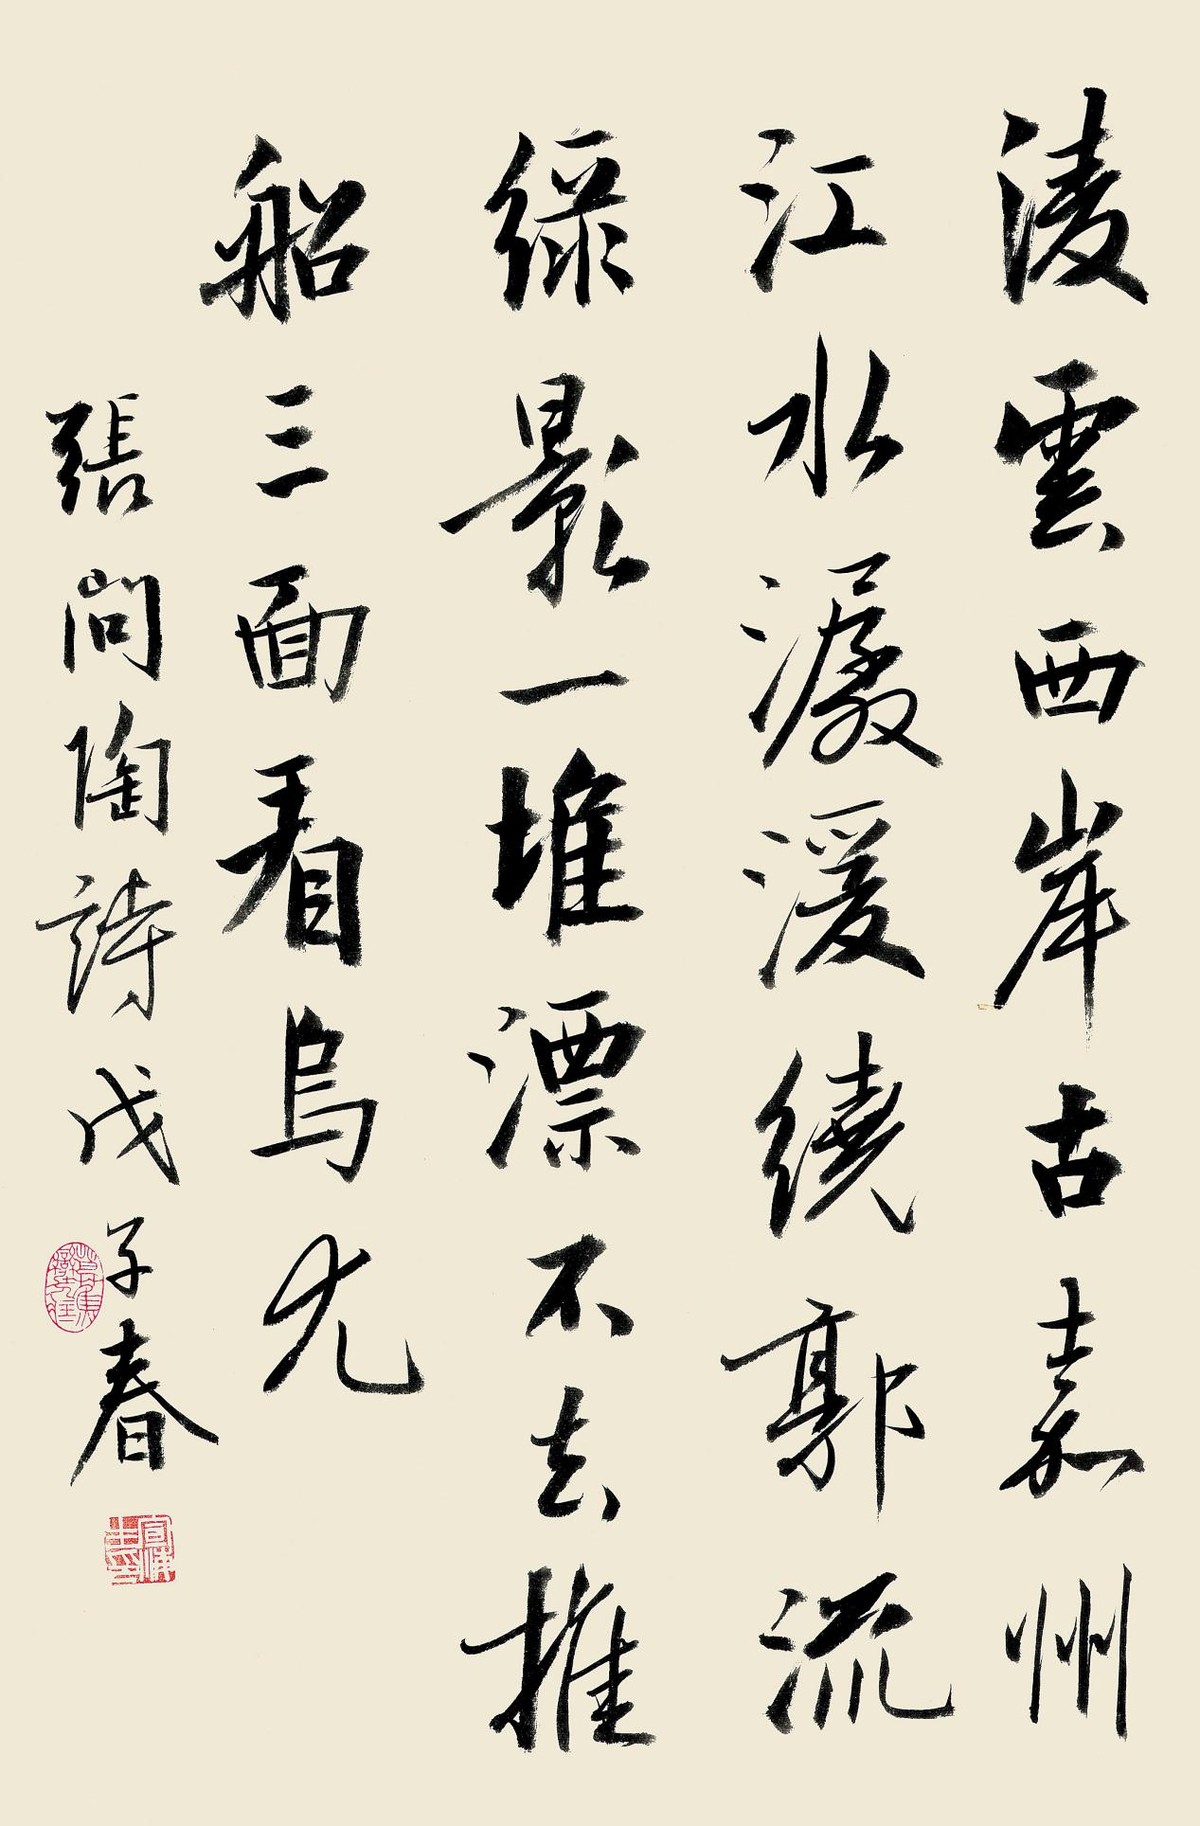 淩雲西岸古嘉州
江水潺湲繞郭流
綠影一堆漂不去推
船三面看烏尤
張問陶詩戊子春